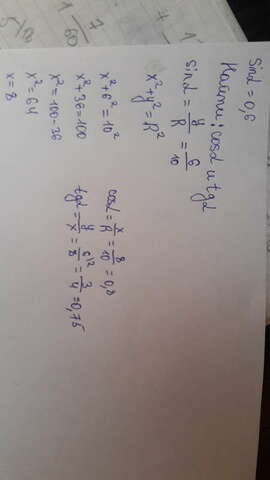 sinα = 0,6
Найти: cosα и tgα
sinα = y/R = 6/10
x² + y² = R²
x² + 6² = 10²
x² + 36 = 100
x² = 100 - 36
x² = 64
x = 8
cosα = x/R = 8/10 = 0,8
tgα = y/x = 6/8 |2 = 3/4 = 0,75
1 7
60